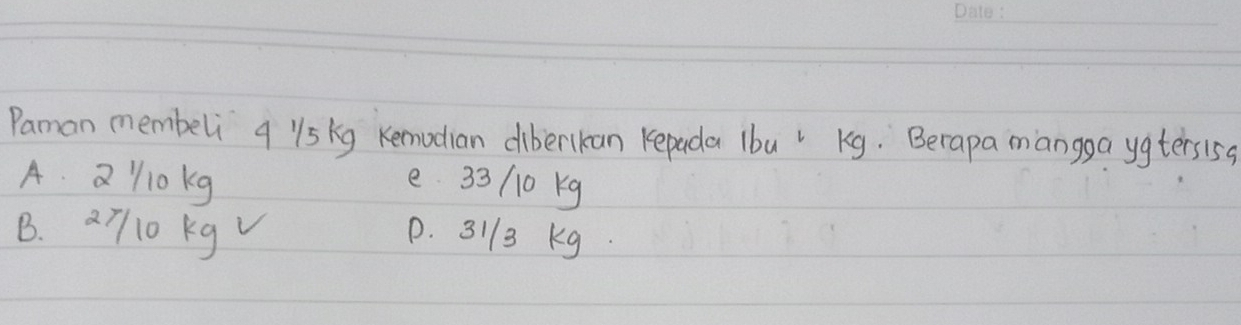 Date :
Paman membeli 4 1/5 kg kemudian diberikan kepada Ibu kg. Berapa mangga yg tersisa
A. 2 1/10 kg e. 33/10 kg
B. 27/10 kg ✓ D. 31/3 kg.